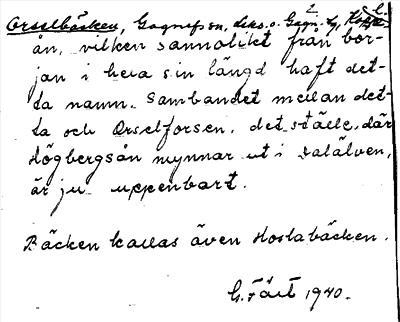 Orselbäcken, Gagnef sn,
ån, vilken sannolikt från bör-
jan i hela sin längd haft det-
ta namn. Sambandet mellan det-
ta och Orselforsen, det ställe, där
Högbergsån mynnar ut i Dalälven,
är ju uppenbart.
Bäcken kallas även Hostabäcken.
G. 1940.